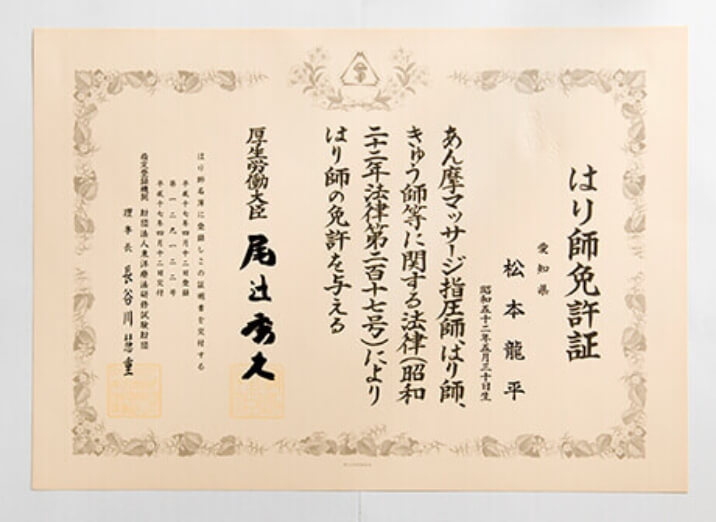 はり師免許証
愛知県
松本龍平
昭和五十二年五月三十日生
あん摩マッサージ指圧師、はり師、
きゅう師等に関する法律(昭和
二十二年法律第二百十七号)により
はり師の免許を与える
厚生労働大臣 尾辻秀久
はり師名簿に登録しこの証明書を交付する
平成十七年四月十二日登録
第一二九一二二号
平成十七年四月十二日交付
指定登録機関 財団法人東洋療法研修試験財団
理事長 長谷川慧重